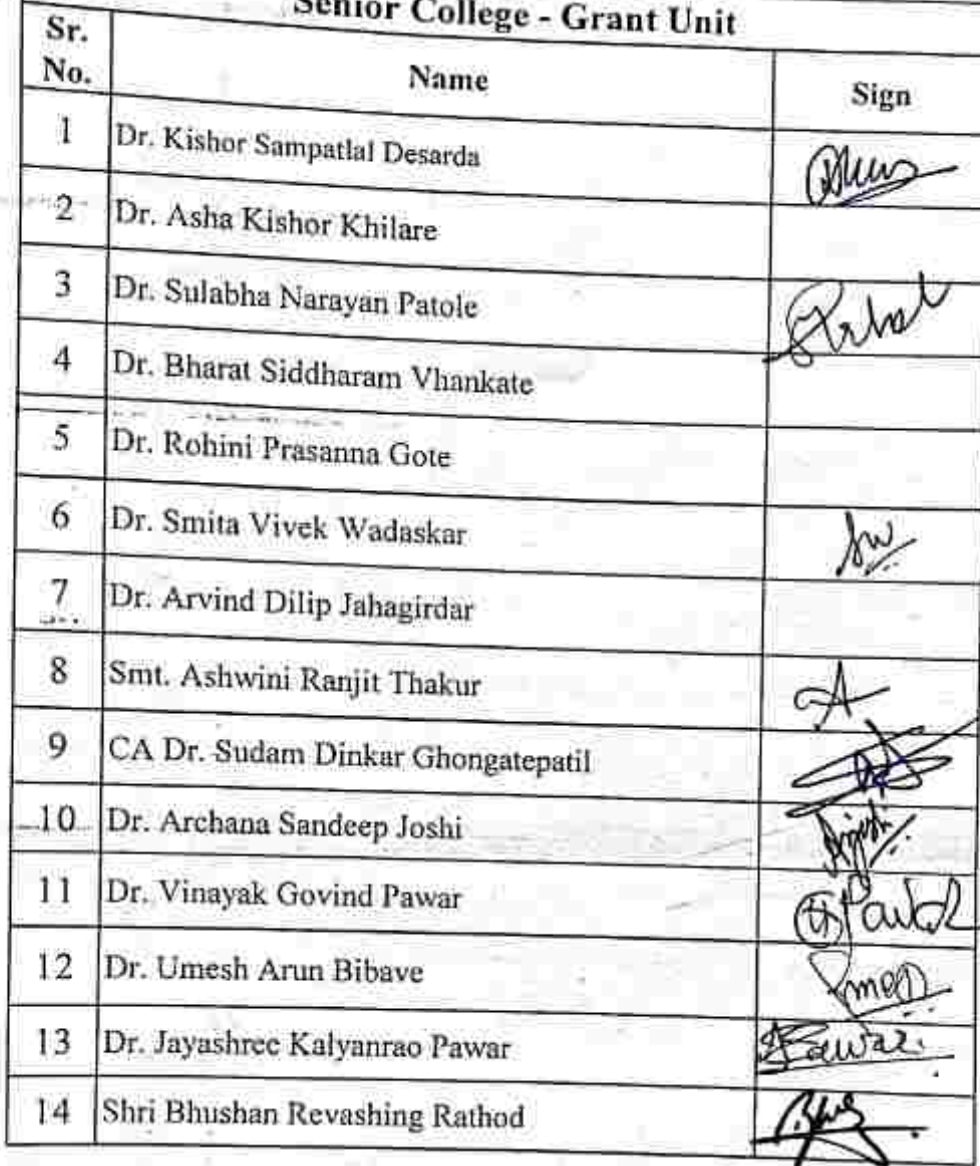 Senior College - Grant Unit
Sr. No. Name Sign
1 Dr. Kishor Sampatlal Desarda
2 Dr. Asha Kishor Khilare
3 Dr. Sulabha Narayan Patole
4 Dr. Bharat Siddharam Vhankate
5 Dr. Rohini Prasanna Gote
6 Dr. Smita Vivek Wadaskar
7 Dr. Arvind Dilip Jahagirdar
8 Smt. Ashwini Ranjit Thakur
9 CA Dr. Sudam Dinkar Ghongatepatil
10 Dr. Archana Sandeep Joshi
11 Dr. Vinayak Govind Pawar
12 Dr. Umesh Arun Bibave
13 Dr. Jayashree Kalyanrao Pawar
14 Shri Bhushan Revashing Rathod